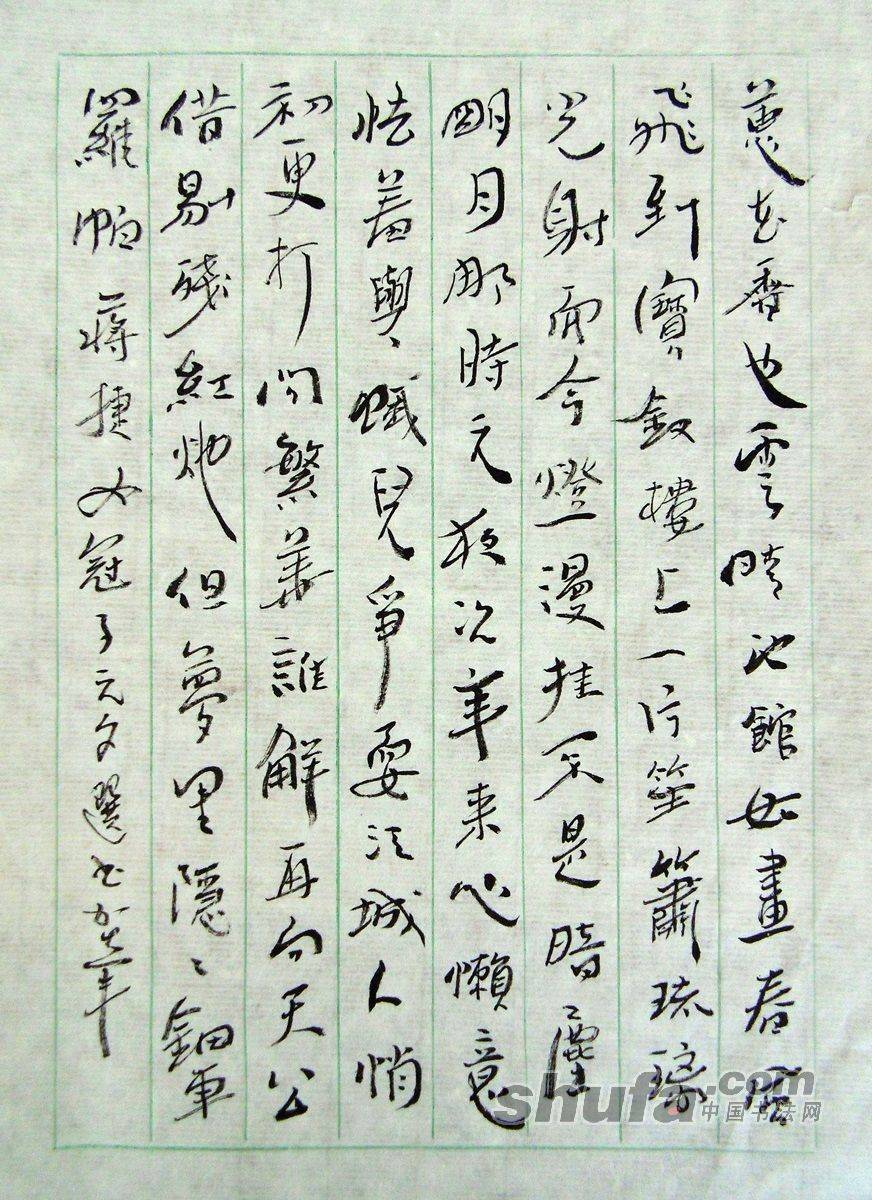 蕙花香也雪晴池館如畫春風
飛到寶釵樓上一片笙簫琉璃
光射而今燈漫挂不是暗塵
明月那時元夜況年来心懶意
怯羞與蛾兒爭耍江城人悄
初更打問繁華誰解再向天公
借剔殘紅灺但夢里隱〻鈿車
羅帕 蔣捷女冠子元夕選
shufa.com
中国书法网